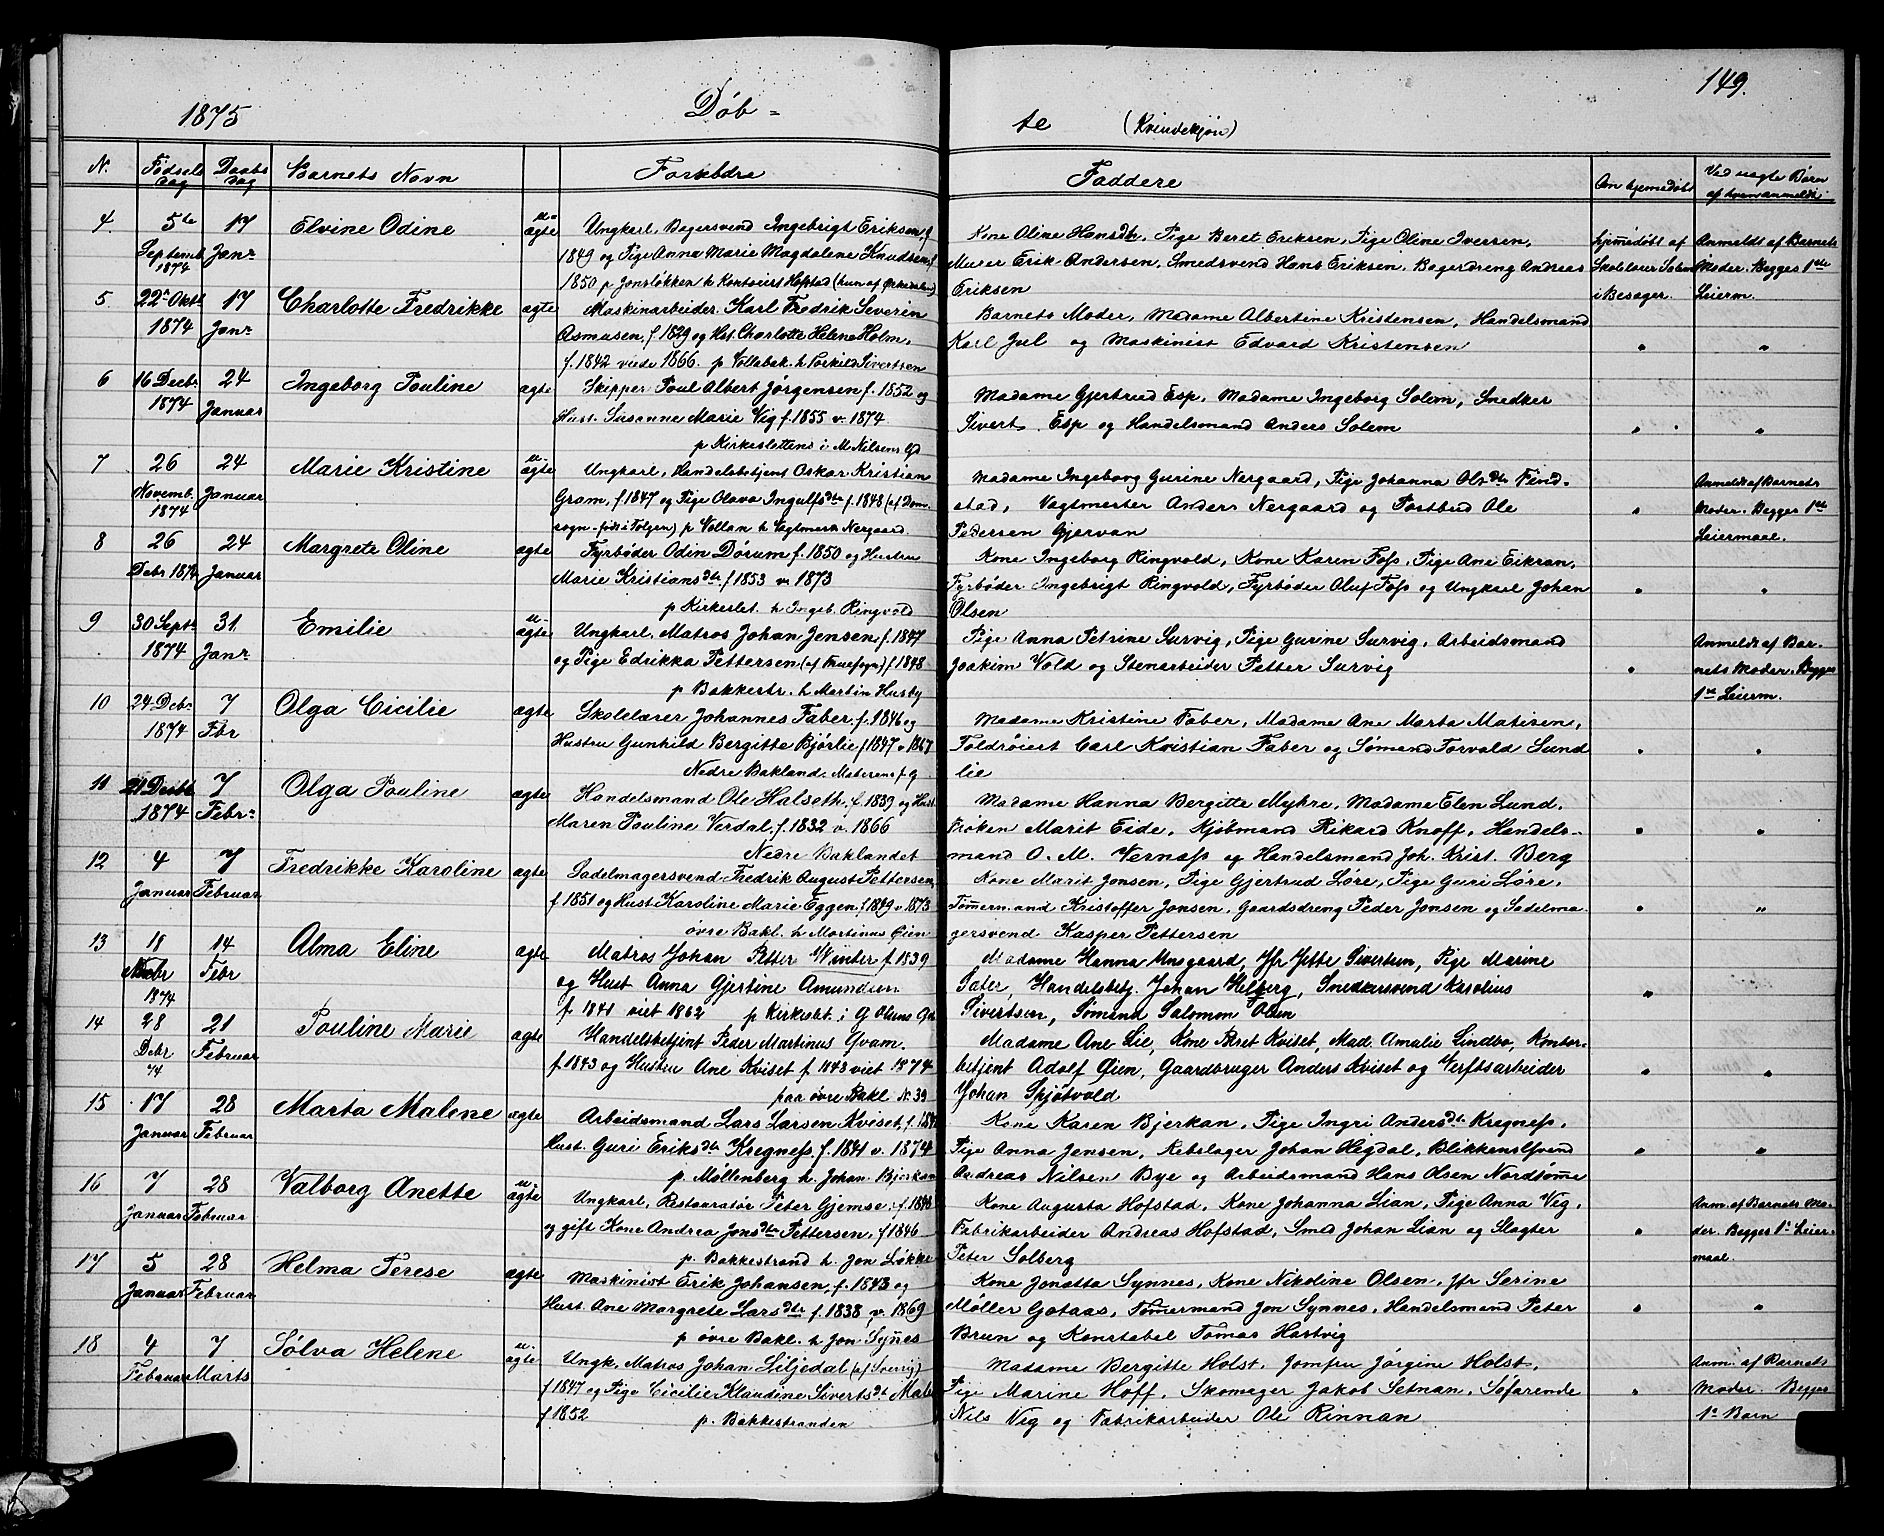 149.
1875 Døb- te (Kvindekjøn)
N. Fødsels dag Daabs dag Barnets Navn Forældre Faddere Om hjemmedøbt Ved uægte Børn af hvem anmeldt
4 5te Septemb. 1874 17 Janr Elvine Odine u-ægte
Ungkarl, Bagersvend Ingebrigt Eriksen, f.
1849 og Pige Anna Marie Magdalene Knudsen, f.
1850 p Jonsløkken h Kontorist Hofstad (hun af Orkedalen)
Kone Oline Hansdtr, Pige Beret Eriksen, Pige Oline Iversen,
Murer Erik Andersen, Smedsvend Hans Eriksen, Bagerdreng Andreas
Eriksen
hjemmedøbt af Skolelærer i Besager.
Anmeldt af Barnets Moder. Begges 1ste Leierm.
5 22de Oktb 1874 17 Janr Charlotte Fredrikke ægte
Maskinarbeider Karl Fredrik Severin
Asmusen, f. 1829 og Hst. Charlotte Helene Holm,
f. 1842 viede 1866. p Vollabak. h Torkild Sivertsen
Barnets Moder, Madame Albertine Kristensen, Handelsmand
Karl Jul og Maskinist Edvard Kristensen
" "
6 16 Decbr 1874 24 Januar Ingeborg Pouline ægte
Skipper Poul Albert Jørgensen f. 1852 og
Hust. Susanne Marie Vig f. 1855 v. 1874.
p Kirkesletten i M. Nilsens Gd
Madame Gjertrud Esp, Madame Ingeborg Solem, Snedker
Sivert Esp og Handelsmand Anders Solem
" "
7 26 Novemb. 1874 24 Januar Marie Kristine u-ægte
Ungkarl, Handelsbetjent Oskar Kristian
Gram, f. 1847 og Pige Olava Ingulfsdtr f. 1848 (af Dom-
sogn fød i Tolgen) p Vollan h Vagtmester Nergaard
Madame Ingeborg Gurine Nergaard, Pige Johanna Olsdtr Find-
stad, Vagtmester Anders Nergaard og Postbud Ole
Pedersen Gjervan
" Anmeldt af Barnets Moder. Begges 1ste Leiermaal.
8 26 Debr 1874 24 Januar Margrete Oline ægte
Fyrbøder Odin Dørum f. 1850 og Hustru
Marie Kristiansdtr f. 1853 v. 1873
p Kirkeslet. h Ingeb. Ringvold
Kone Ingeborg Ringvold, Kone Karen Foss, Pige Ane Eikran,
Fyrbøder Ingebrigt Ringvold, Fyrbøder Oluf Foss og Ungkarl Johan
Olsen
" "
9 30 Septr 1874 31 Janr Emilie u-ægte
Ungkarl, Matros Johan Jensen, f. 1847
og Pige Edrikka Pettersen (af Fruesogn) f. 1848
p Bakkestr. h Martin Husby
Pige Anna Petrine Survig, Pige Gurine Survig, Arbeidsmand
Joakim Vold og Stenarbeider Petter Survig
" Anmeldt af Barnets Moder. Begges 1ste Leierm.
10 24 Debr 1874 7 Fbr Olga Cicilie ægte
Skolelærer Johannes Faber, f. 1846 og
Hustru Gunhild Bergitte Bjørlie f 1847 v 1867
Nedre Bakland.
Madame Kristine Faber, Madame Ane Marta Matisen,
Toldrøiert Carl Kristian Faber og Sømand Torvald Lund
lie
" "
11 21 Decbr 1874 7 Febr Olga Pouline ægte
Handelsmand Ole Halseth, f. 1839 og Hust.
Maren Pouline Verdal, f. 1832 v. 1866
Nedre Baklandet
Madame Hanna Bergitte Myhre, Madame Elen Lund,
Frøken Marit Eide, Kjøbmand Rikard Knoff, Handels-
mand O. M. Vernass og Handelsmand Joh. Krist. Berg
" "
12 4 Januar 7 Februar Fredrikke Karoline ægte
Sadelmagersvend Fredrik August Pettersen,
f 1851 og Hust Karoline Marie Eggen f 1849 v 1873
øvre Bakl. h Martinus Øien
Kone Marit Jonsen, Pige Gjertrud Løre, Pige Guri Løre,
Tømermand Kristoffer Jonsen, Gaardsdreng Peder Jonsen og Sadelma-
gersvend Kasper Pettersen
" "
13 18 1874 14 Febr Alma Eline ægte
Matros Johan Petter Winter f 1839
og Hust Anna Gjertine Amundsen
f 1841 viet 1862 p Kirkeslet. i G Olsens Gd
Madame Hanna Unsgaard, Jfr Jette Sivertsen, Pige Marine
Sater, Handelsbetj. Johan Helberg, Snedkersvend Karolius
Sivertsen, Sømand Salomon Olsen
"
14 28 Debr 74 21 Februar Pouline Marie ægte
Handelsbetjent Peder Martinus Qvam.
f 1843 og Hustru Ane Kviset f 1843 viet 1874
paa øvre Bakl N. 39
Madame Ane Lie, Kone Beret Kviset, Mad. Amalie Lindbo, Kontor-
betjent Adolf Øien, Gaardbruger Anders Kviset og Verftsarbeider
Johan Spjøtvold
" "
15 17 Januar 28 Februar Marta Malene ægte
Arbeidsmand Lars Larsen Kviset, f.
Hust. Guri Eriksdtr Kregness, f. 1841 v. 1874
p. Møllenberg h. Johan Bjerkan
Kone Karen Bjerkan, Pige Ingri Andersdt Kregness,
Pige Anna Jensen, Rebslager Johan Hegdal, Blikkenslsvend
Andreas Nilsen Bye og Arbeidsmand Hans Olsen Nordtømme
" "
16 7 Januar 28 Februar Valborg Anette u-ægte
Ungkarl, Restauratør Peter Gjemse, f. 1848
og gift Kone Andrea Jonsdtr Pettersen, f 1846
p. Bakkestrand h. Jon Løkke
Kone Augusta Hofstad, Kone Johanna Lian, Pige Anna Vig,
Fabrikarbeider Andreas Hofstad, Smed Johan Lian og Slagter
Peter Solberg
" Anm. af Barnets Moder. Begges 1e Leiermaal.
17 5 Januar 28 Februar Helma Terese ægte
Maskinist Erik Johansen, f. 1843 og
Hust. Ane Margrete Larsdtr f. 1838 v. 1869
p øvre Bakl. h Jon Synnes
Kone Jonetta Synnes, Kone Nikoline Olsen, Jfr Serine
Møller Gotaas, Tømermand Jon Synnes, Handelsmand Peter
Brun og Konstabel Tomas Hartvig
" "
18 4 Februar 7 Marts Sølva Helene u-ægte
Ungk. Matros Johan Liljedal (af Sverig)
f 1847 og Pige Cicilie Klaudine Sivertsdt
f 1852 p. Bakkestranden
Madame Bergitte Holst, Jomfru Jørgine Holst,
Pige Marine Hoff, Skomager Jakob Setnan, Søfarende
Nils Vig og Fabrikarbeider Ole Rinnan
" Anm. af Barnets Moder. Begges 1e Barn